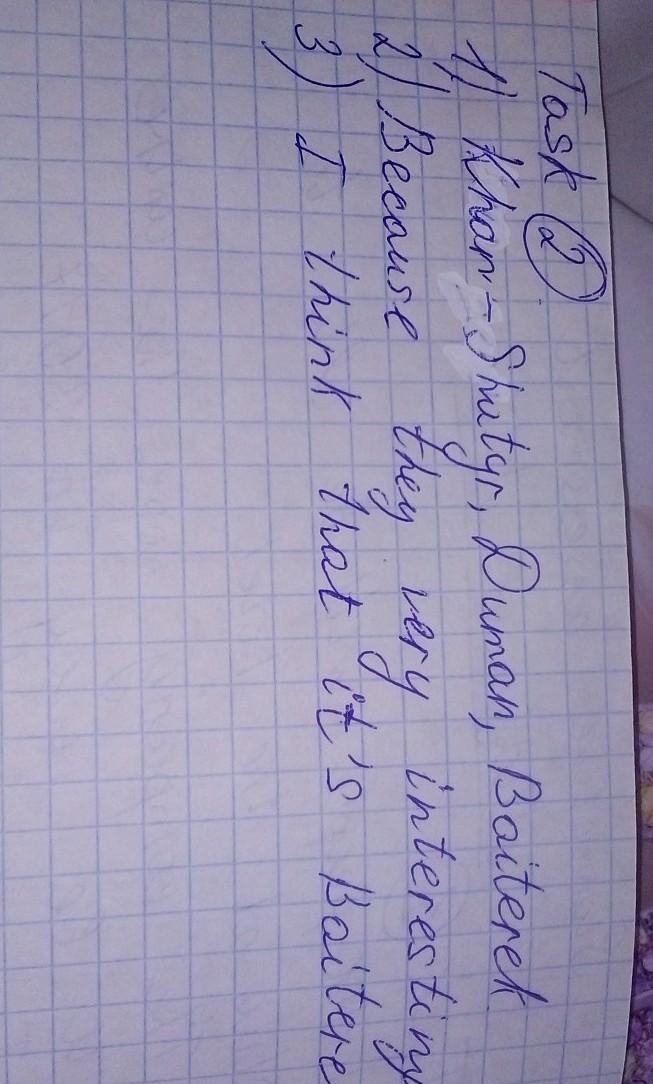 Task 2
1) Khan-Shatyr, Duman, Baiterek
2) Because they very interesting
3) I think that it's Baitere